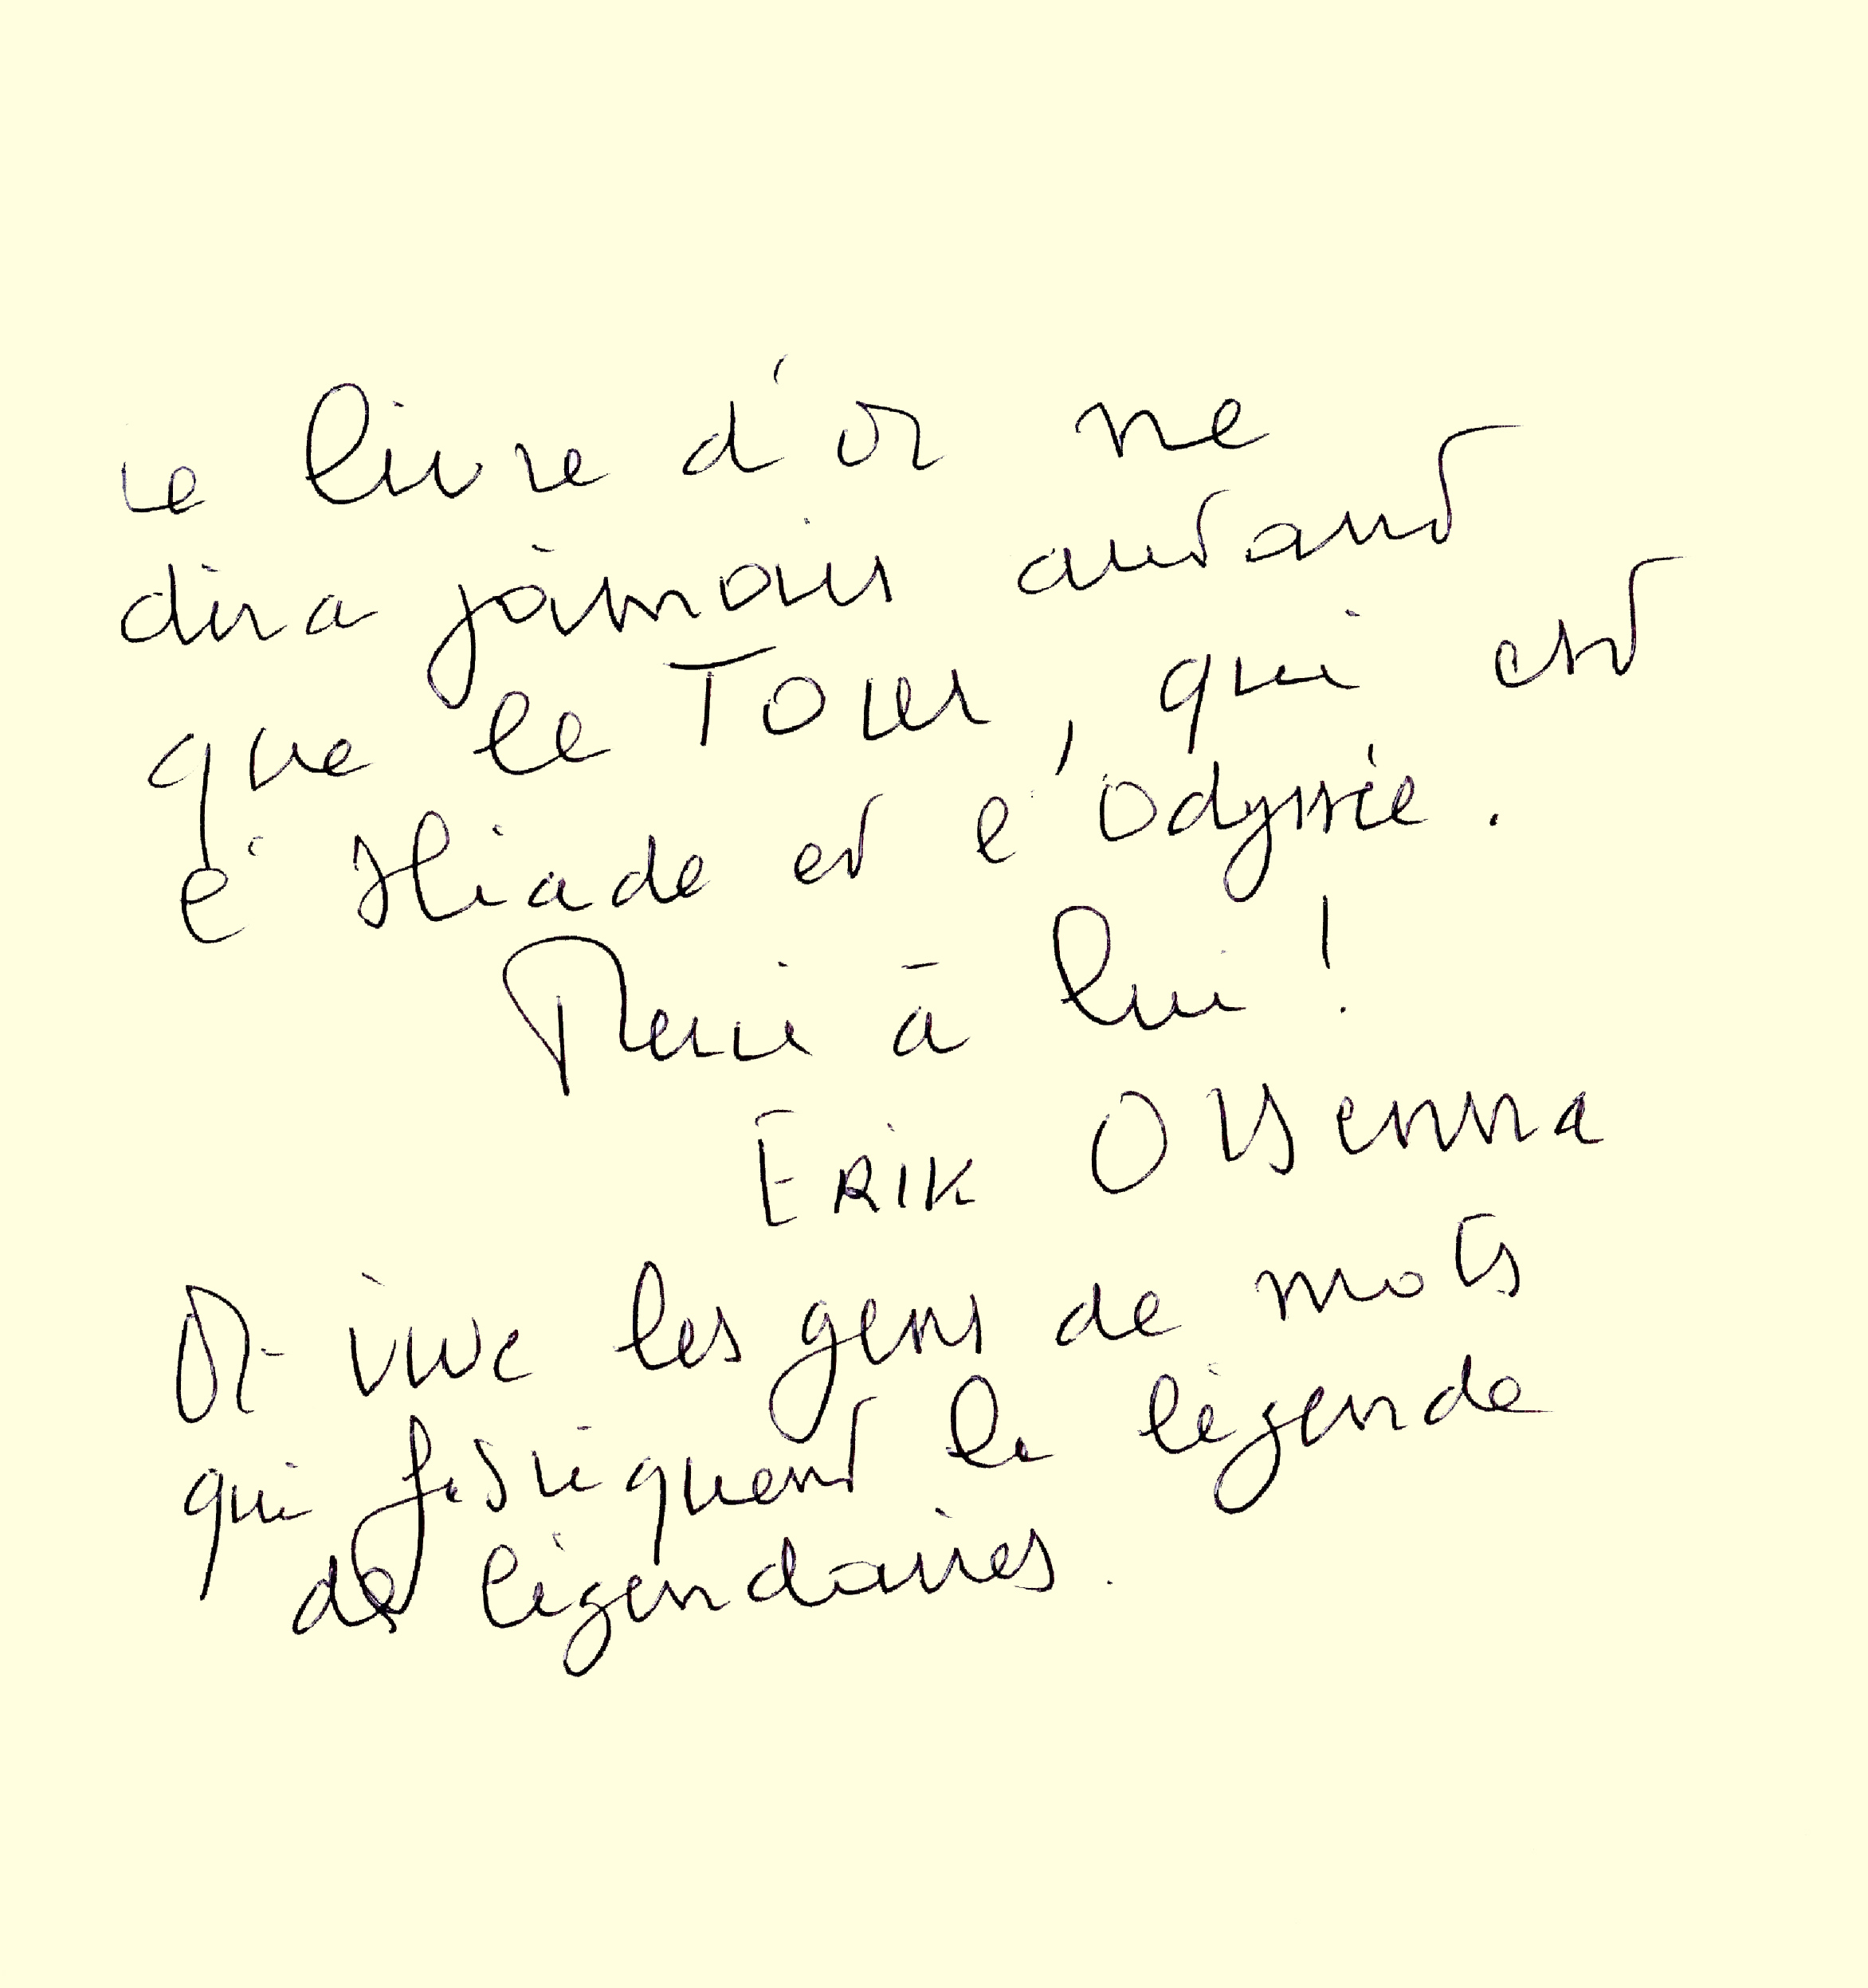 Le livre d'or ne
dira jamais autant
que le Tour, qui est
l'Iliade et l'Odyssée.
Merci à lui !
ERIK Orsenna
Et vive les gens de mots
qui fabriquent la légende
des légendaires.